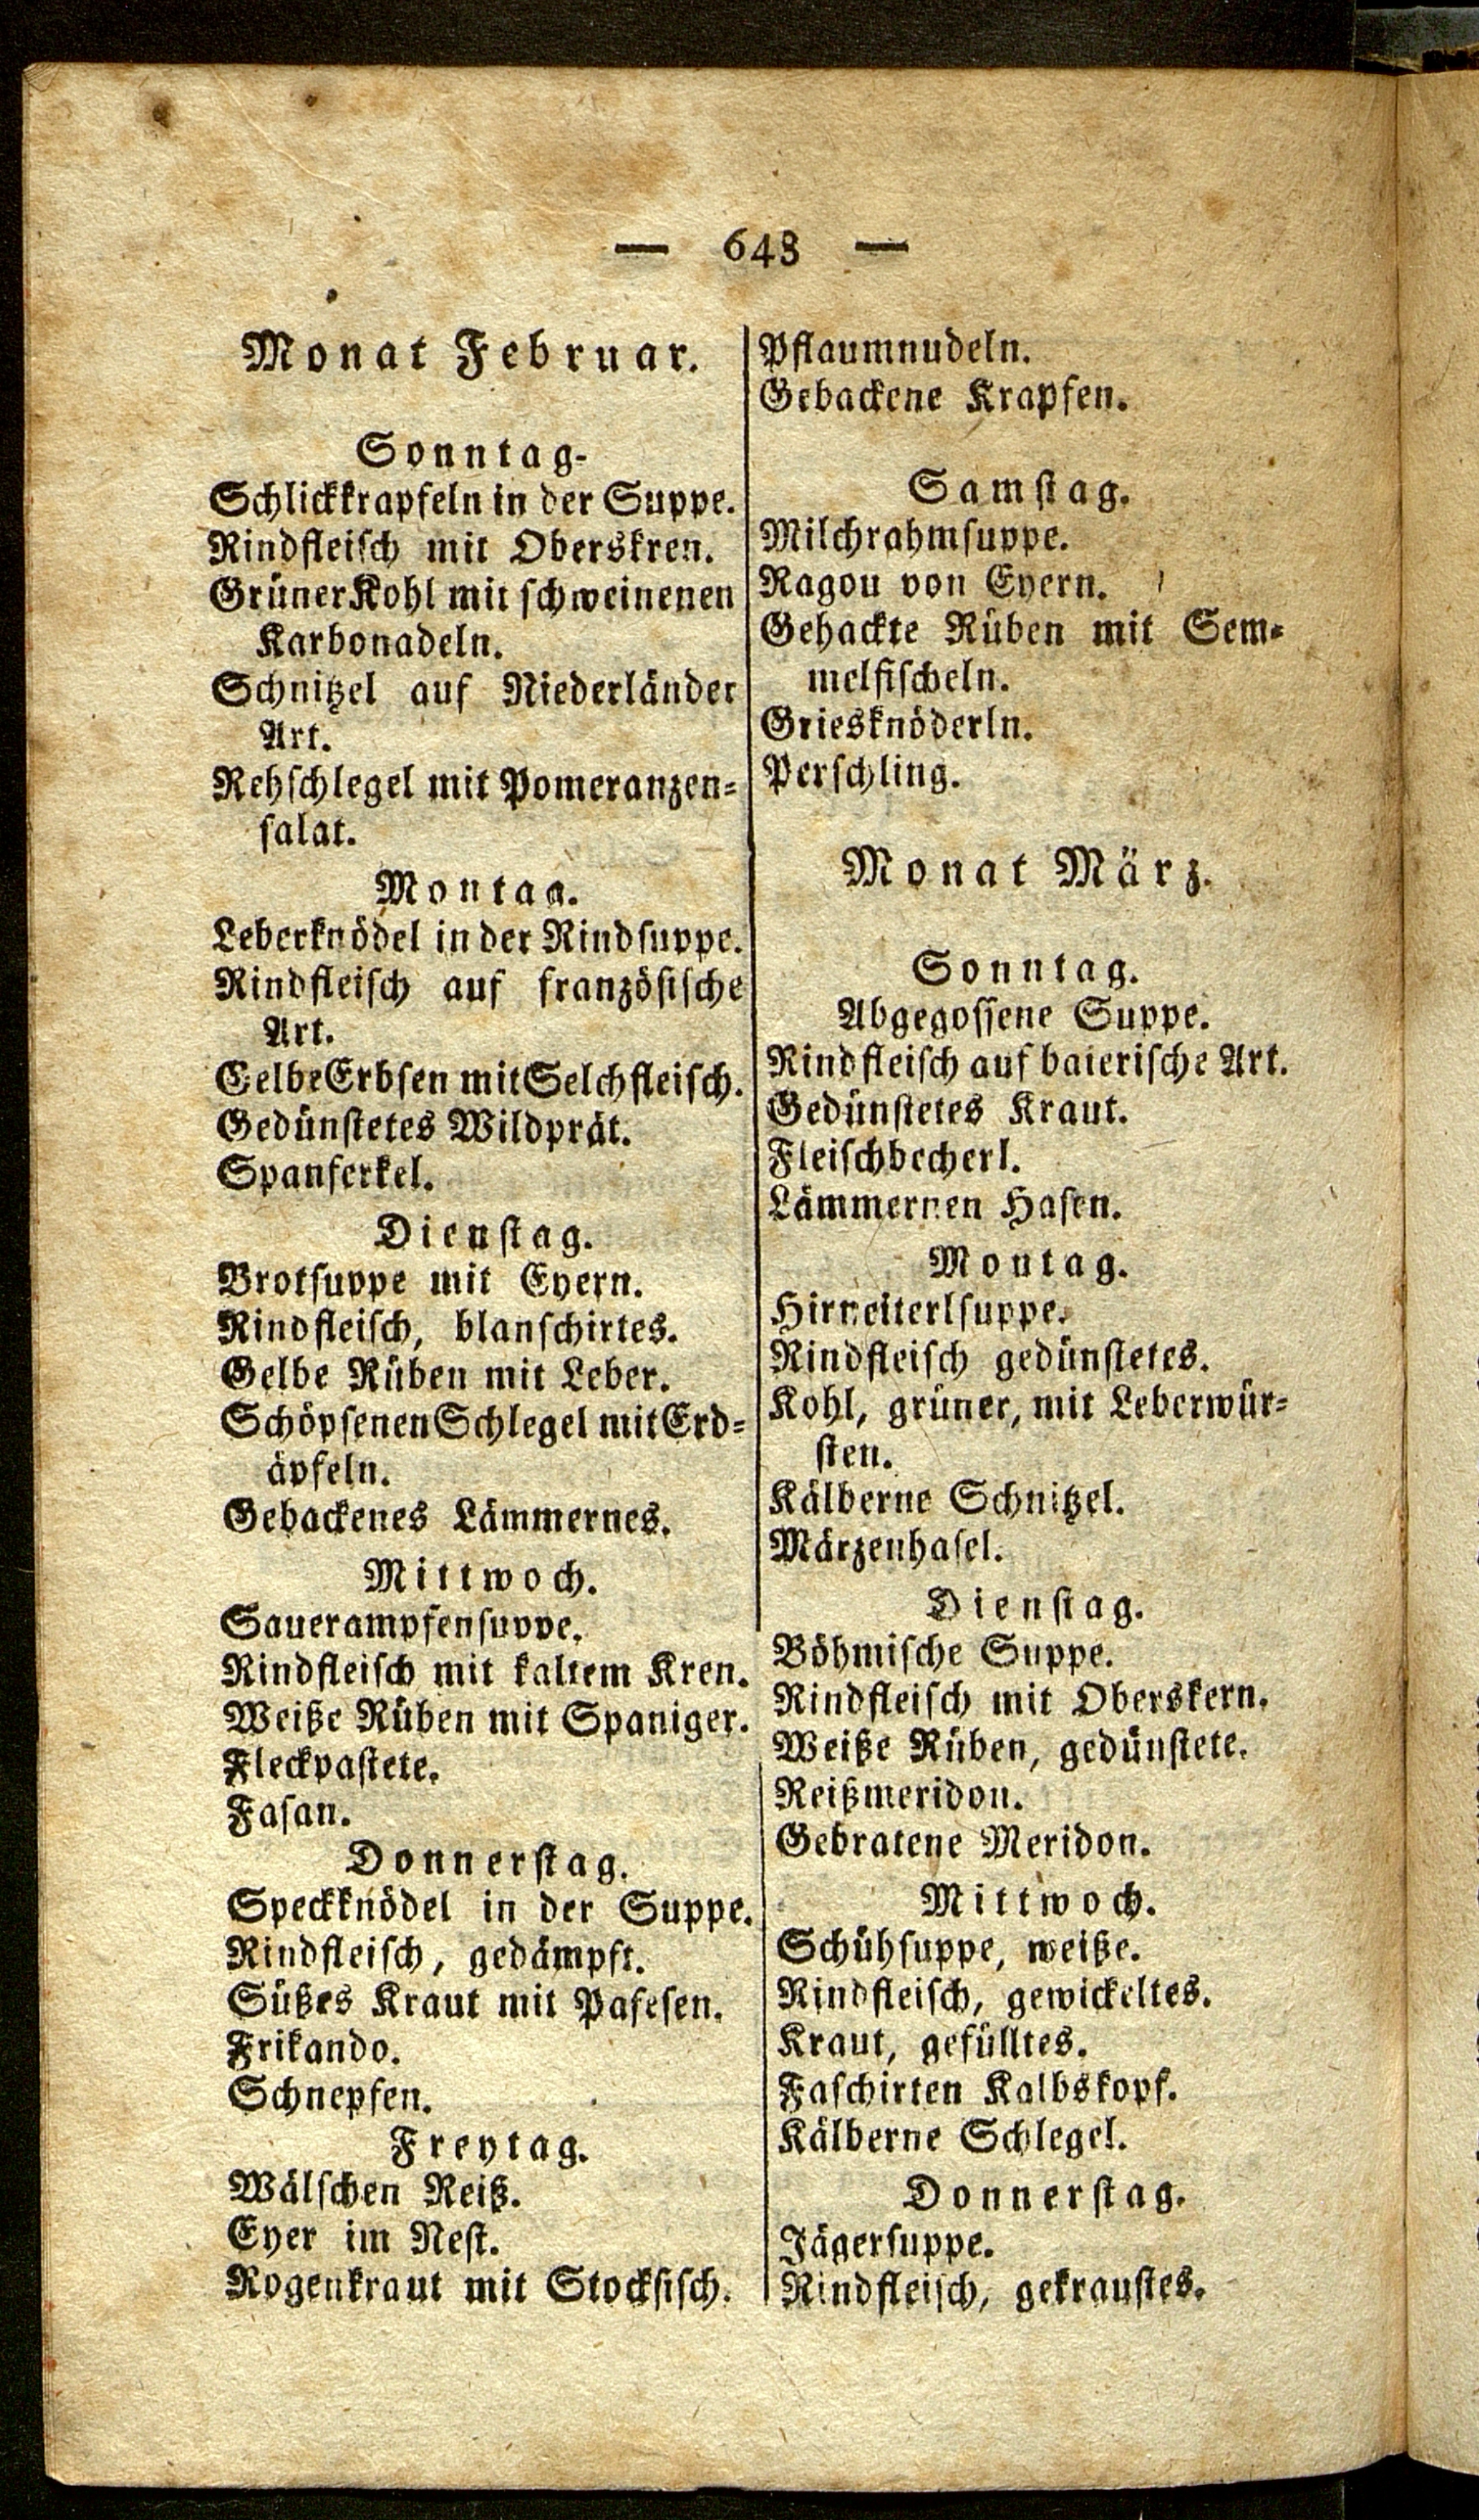 — 648 —
Monat Februar.
Sonntag.
Schlickkrapfeln in der Suppe.
Rindfleisch mit Oberskren.
Grüner Kohl mit schweinenen
Karbonadeln.
Schnitzel auf Niederländer
Art.
Rehschlegel mit Pomeranzen=
salat.
Montag.
Leberknödel in der Rindsuppe.
Rindfleisch auf französische
Art.
Gelbe Erbsen mit Selchfleisch.
Gedünstetes Wildprät.
Spanferkel.
Dienstag.
Brotsuppe mit Eyern.
Rindfleisch, blanschirtes.
Gelbe Rüben mit Leber.
Schöpsenen Schlegel mit Erd=
äpfeln.
Gebackenes Lämmernes.
Mittwoch.
Sauerampfensuppe.
Rindfleisch mit kaltem Kren.
Weiße Rüben mit Spaniger.
Fleckpastete.
Fasan.
Donnerstag.
Speckknödel in der Suppe.
Rindfleisch, gedämpft.
Süßes Kraut mit Pafesen.
Frikando.
Schnepfen.
Freytag.
Wälschen Reiß.
Eyer im Nest.
Rogenkraut mit Stockfisch.
Pflaumnudeln.
Gebackene Krapfen.
Samstag.
Milchrahmsuppe.
Ragou von Eyern.
Gehackte Rüben mit Sem=
melfischeln.
Griesknöderln.
Perschling.
Monat März.
Sonntag.
Abgegossene Suppe.
Rindfleisch auf baierische Art.
Gedünstetes Kraut.
Fleischbecherl.
Lämmernen Hasen.
Montag.
Hirneiterlsuppe.
Rindfleisch gedünstetes.
Kohl, grüner, mit Leberwür=
sten.
Kälberne Schnitzel.
Märzenhasel.
Dienstag.
Böhmische Suppe.
Rindfleisch mit Oberskern.
Weiße Rüben, gedünstete.
Reißmeridon.
Gebratene Meridon.
Mittwoch.
Schühsuppe, weiße.
Rindfleisch, gewickeltes.
Kraut, gefülltes.
Faschirten Kalbskopf.
Kälberne Schlegel.
Donnerstag.
Jägersuppe.
Rindfleisch, gekraustes.